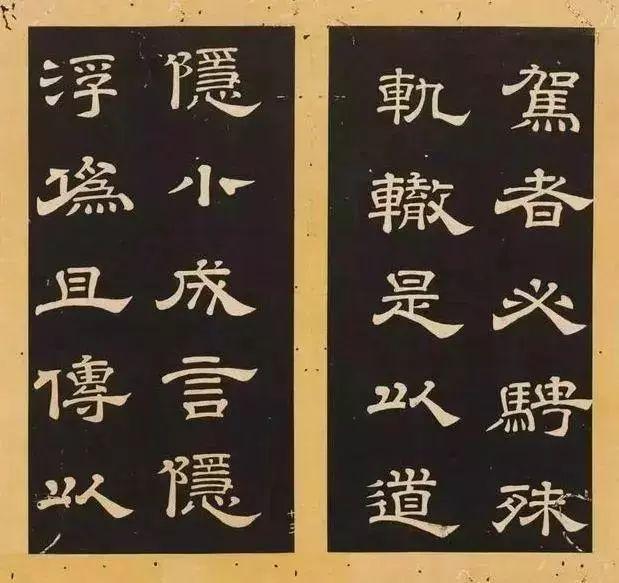 駕者必騁殊
軌轍是以道
隱小成言隱
浮僞且傳以